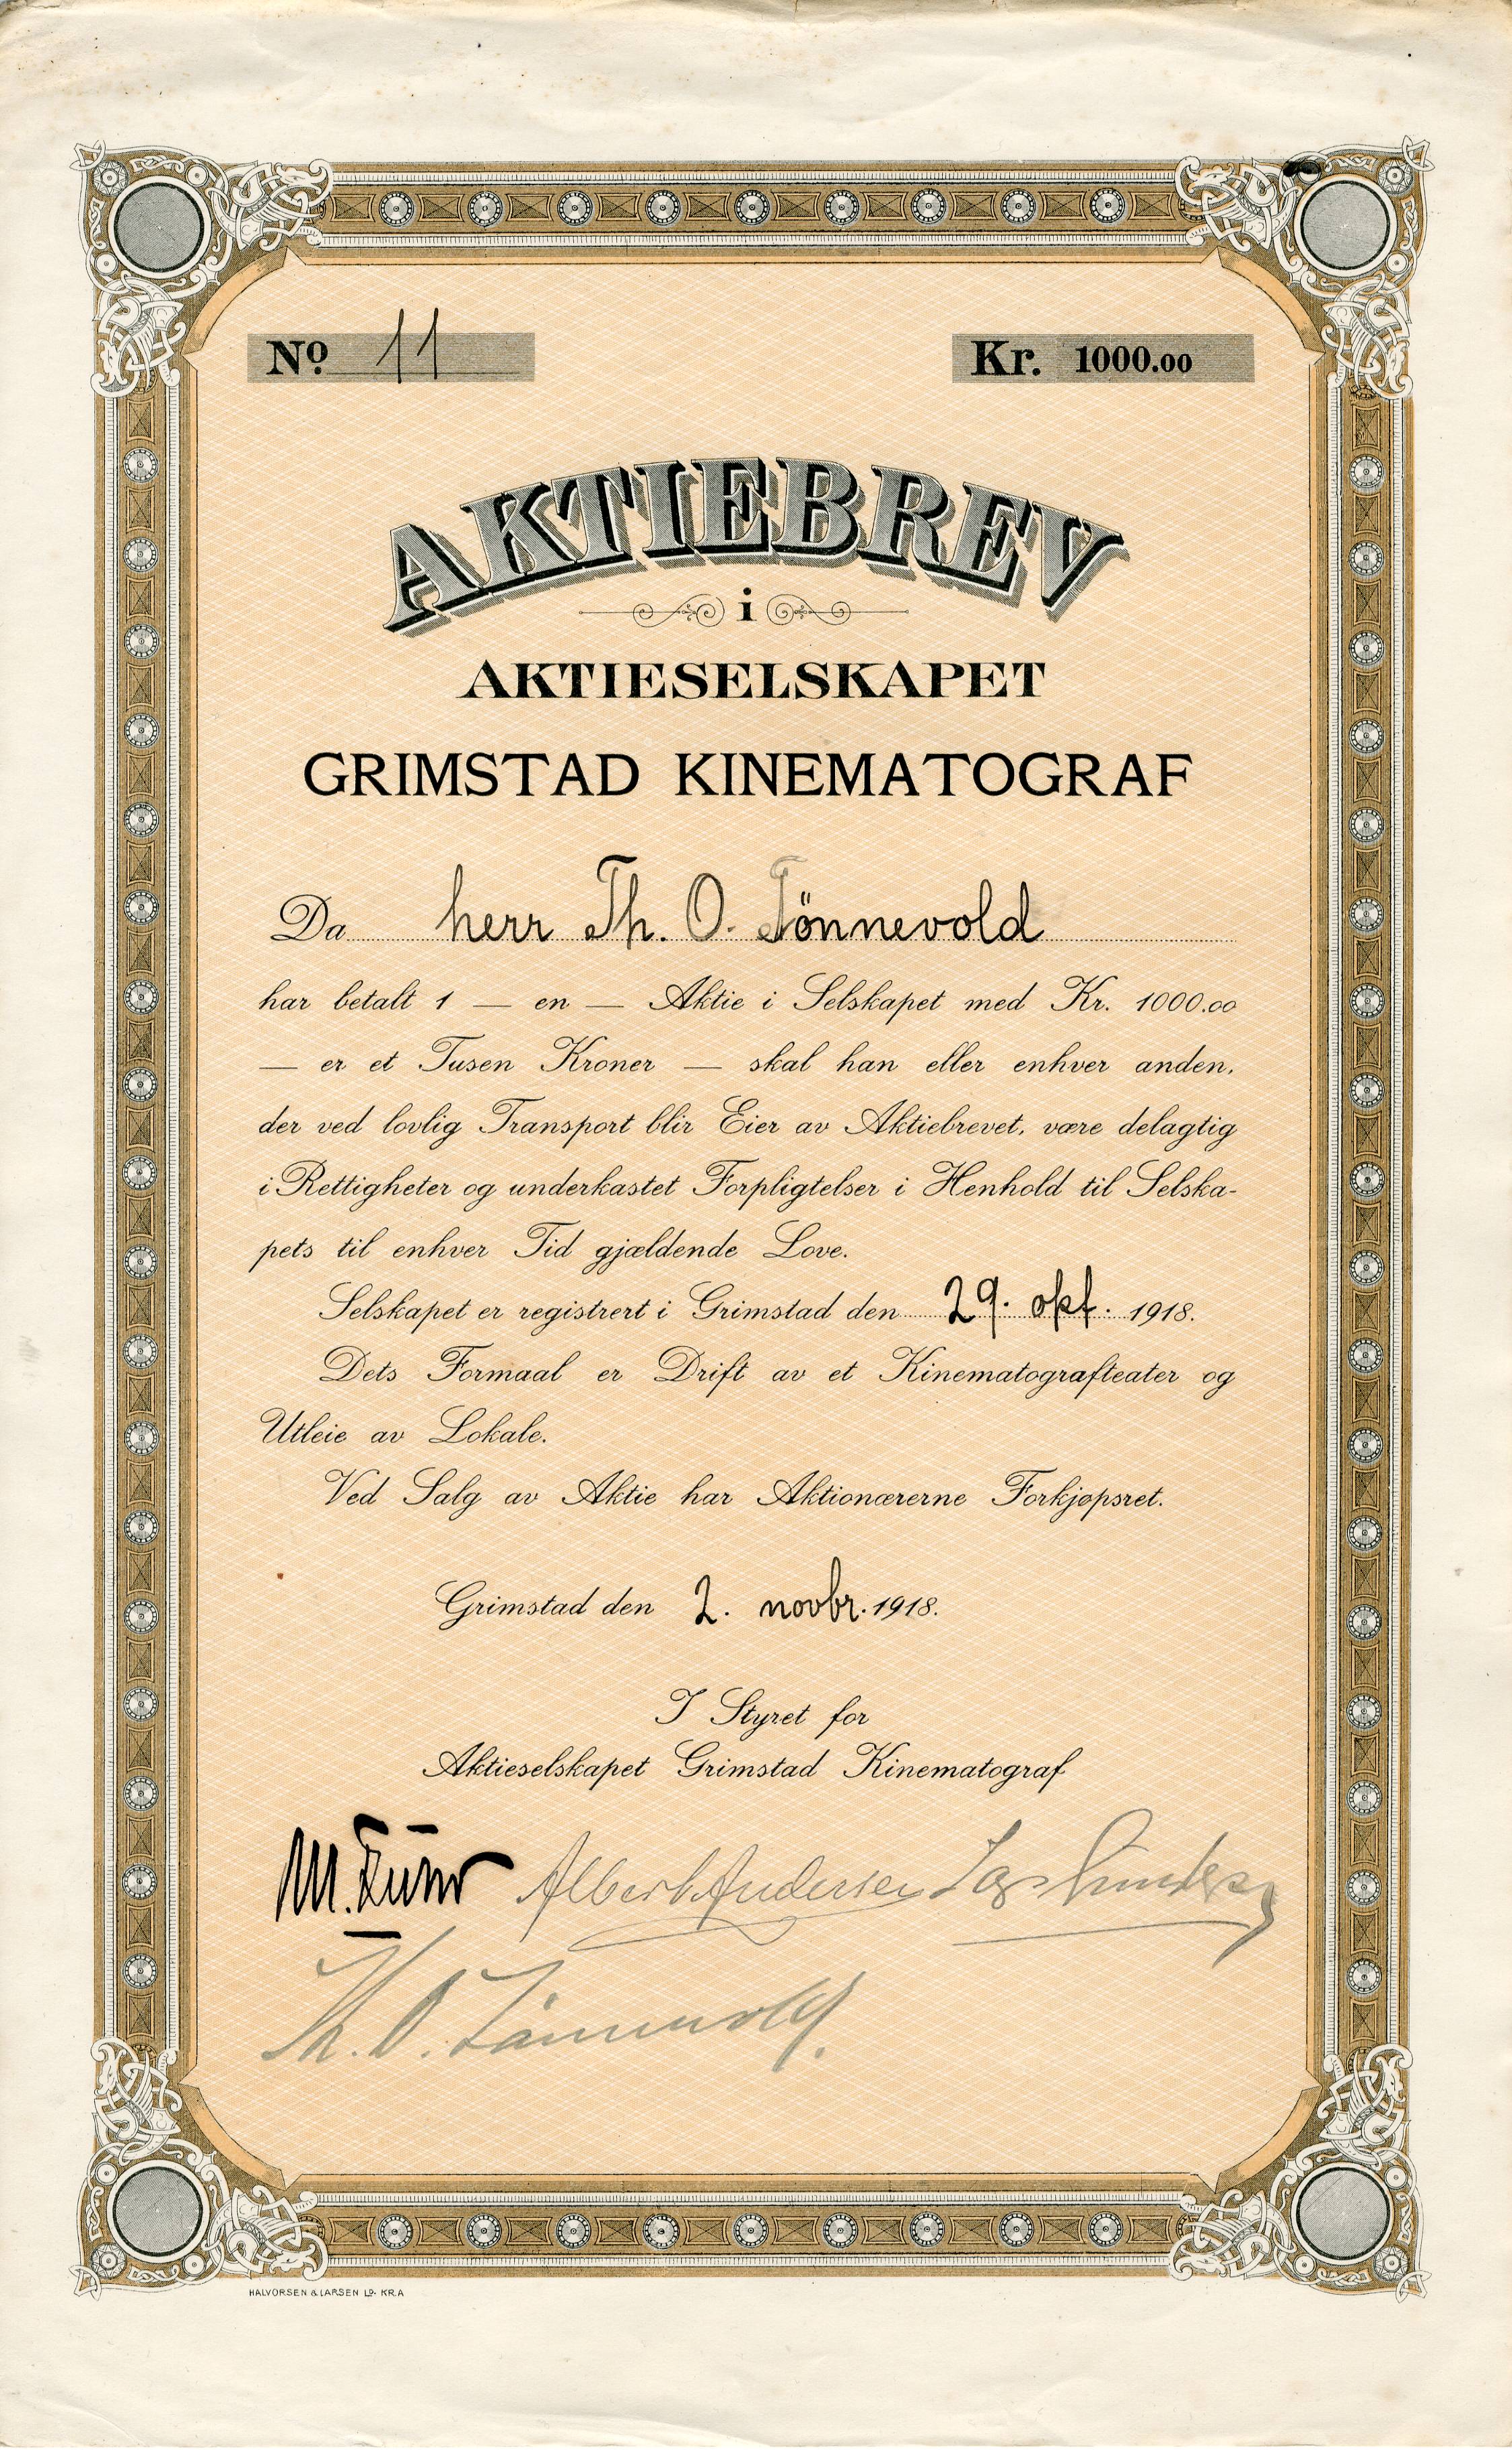 No 11
Kr. 1000.00
AKTIEBREV
i
AKTIESELSKAPET
GRIMSTAD KINEMATOGRAF
Da herr Th. O. Tönnevold
har betalt 1 — en — Aktie i Selskapet med Kr. 1000.00
— er et Tusen Kroner — skal han eller enhver anden,
der ved lovlig Transport blir Eier av Aktiebrevet, være delagtig
i Rettigheter og underkastet Forpligtelser i Henhold til Selska-
pets til enhver Tid gjældende Love.
Selskapet er registrert i Grimstad den 29. okt. 1918.
Dets Formaal er Drift av et Kinematografteater og
Utleie av Lokale.
Ved Salg av Aktie har Aktionærerne Forkjøpsret.
Grimstad den 2. novbr. 1918.
I Styret for
Aktieselskapet Grimstad Kinematograf
M. Albert Andersen
Th. O. Tönnevold.
HALVORSEN & LARSEN LD. KR.A